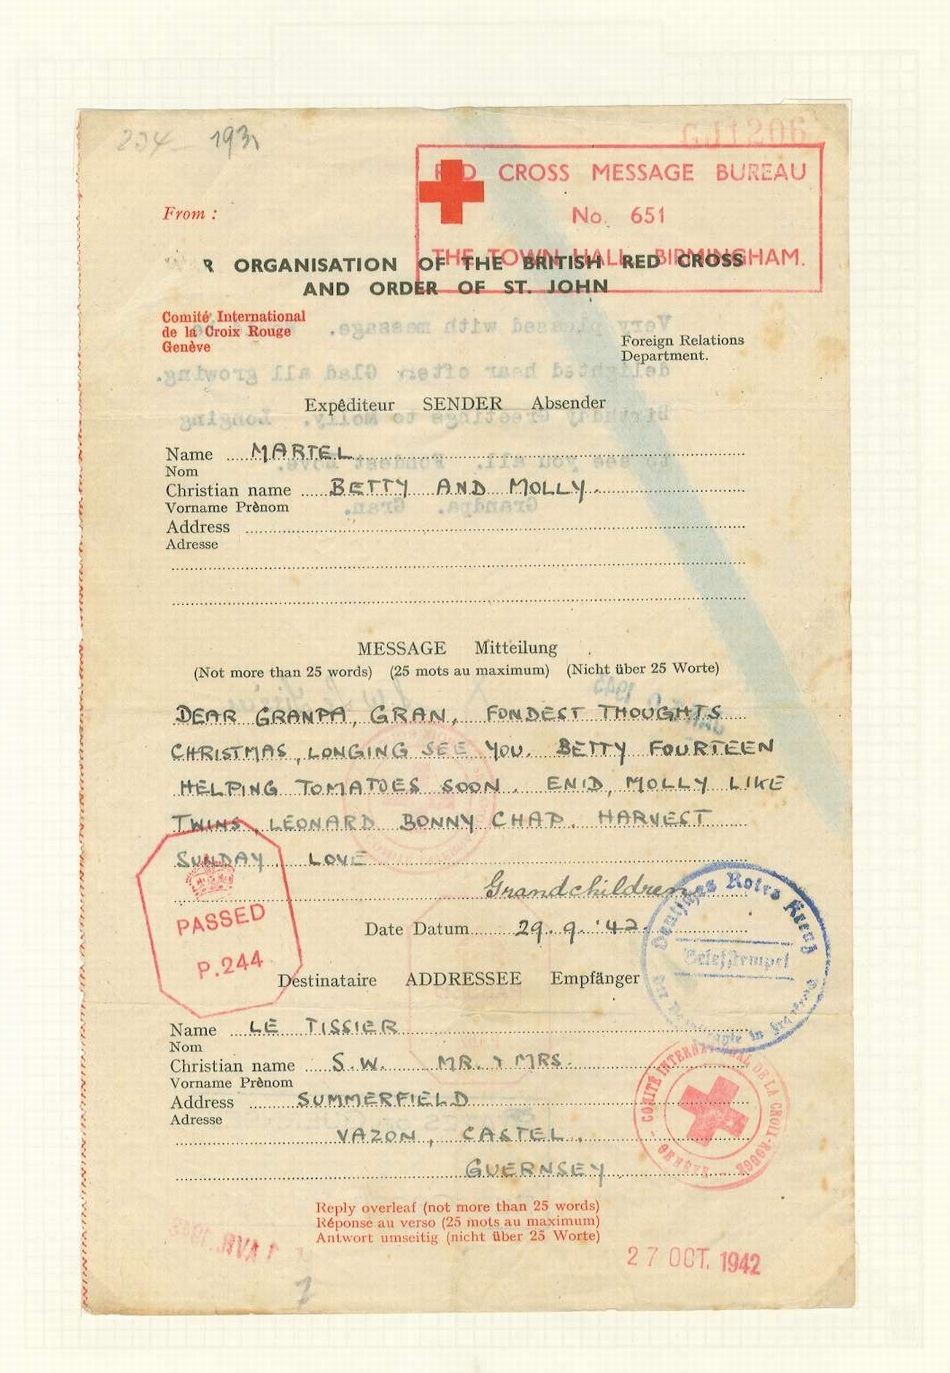 234 193
GJ1206
RED CROSS MESSAGE BUREAU
No. 651
THE TOWN HALL, BIRMINGHAM.
From :
R ORGANISATION OF THE BRITISH RED CROSS
AND ORDER OF ST. JOHN
Comité International
de la Croix Rouge
Genève
Foreign Relations
Department.
Very pleased with message.
delighted hear often Glad all growing.
Birthday Greetings to Molly. Longing
to see you all. Fondest Love.
Grandpa. Gran.
Expéditeur SENDER Absender
Name MARTEL
Nom
Christian name BETTY AND MOLLY.
Vorname Prènom
Address
Adresse
MESSAGE Mitteilung
(Not more than 25 words) (25 mots au maximum) (Nicht über 25 Worte)
DEAR GRANPA, GRAN, FONDEST THOUGHTS
CHRISTMAS, LONGING SEE YOU. BETTY FOURTEEN
HELPING TOMATOES SOON. ENID, MOLLY LIKE
TWINS, LEONARD BONNY CHAP. HARVEST
SUNDAY. LOVE
Grandchildren
PASSED
P.244
Date Datum 29.9.'42.
Deutsches Rotes Kreuz
Briefstempel
Destinataire ADDRESSEE Empfänger
Name LE TISSIER
Nom
Christian name S.W. MR. & MRS.
Vorname Prènom
Address SUMMERFIELD
Adresse
VAZON, CASTEL.
GUERNSEY.
COMITÉ INTERNATIONAL DE LA CROIX-ROUGE
GENÈVE
Reply overleaf (not more than 25 words)
Réponse au verso (25 mots au maximum)
Antwort umseitig (nicht über 25 Worte)
27 OCT. 1942